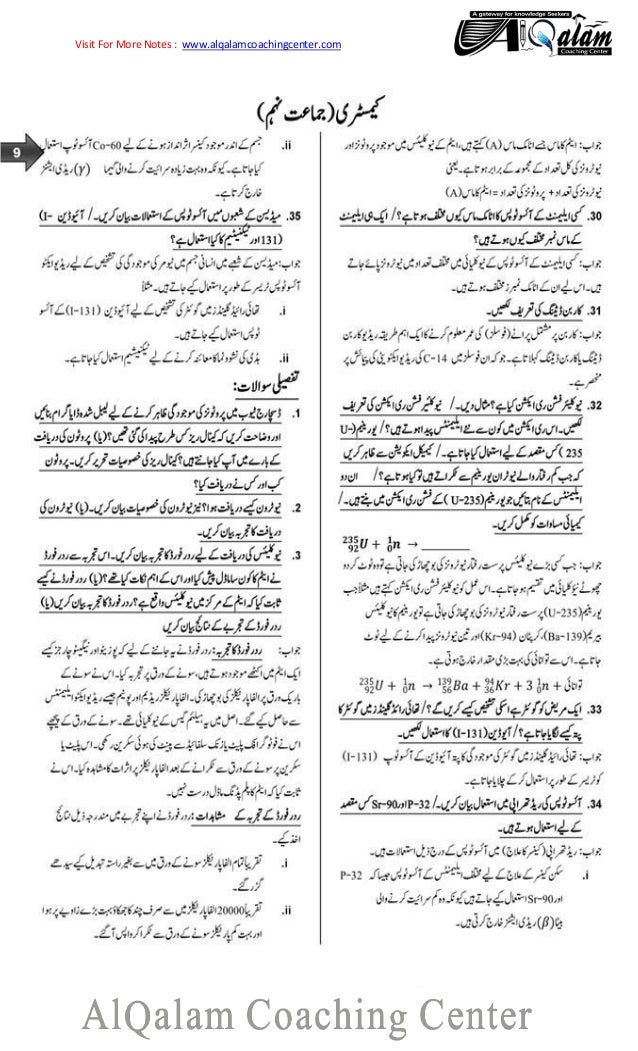 A gateway for knowledge Seekers
AlQalam
Coaching Center
Visit For More Notes : www.alqalamcoachingcenter.com
کیمسٹری (جماعت نہم)
9
جواب: ایٹم کا ماس جسے اٹامک ماس (A) کہتے ہیں، ایٹم کے نیوکلیئس میں موجود پروٹونز اور
نیوٹرونز کی کل تعداد کے مجموعہ کے برابر ہوتا ہے۔ یعنی
نیوٹرونز کی تعداد + پروٹونز کی تعداد = ایٹم کا ماس (A)
30. کسی ایلیمنٹ کے آئسوٹوپس کا اٹامک ماس کیوں مختلف ہوتا ہے؟/ ایک ہی ایلیمنٹ
کے ماس نمبر مختلف کیوں ہوتے ہیں؟
جواب: کسی ایلیمنٹ کے آئسوٹوپس کے نیوکلیائی میں مختلف تعداد میں نیوٹرونز پائے جاتے
ہیں۔ اس لیے ان کے اٹامک نمبرز مختلف ہوتے ہیں۔
31. کاربن ڈیٹنگ کی تعریف لکھیں۔
جواب: کاربن پر مشتمل پرانے (فوسلز) کی عمر معلوم کرنے کا ایک اہم طریقہ ریڈیو کاربن
ڈیٹنگ یا کاربن ڈیٹنگ کہلاتا ہے۔ جو کہ ان فوسلز میں C-14 کی ریڈیو ایکٹویٹی کی پیمائش پر
منحصر ہے۔
32. نیوکلیئر فشن ری ایکشن کیا ہے؟ مثال دیں۔/ نیوکلیئر فشن ری ایکشن کی تعریف
لکھیں۔ اس ری ایکشن میں کون سے نئے ایلیمنٹس پیدا ہوتے ہیں؟/ یورینیم (U-
235) کس مقصد کے لیے استعمال کیا جاتا ہے۔/ کیمیکل ایکویشن سے ظاہر کریں
کہ جب کم رفتار والے نیوٹران یورینیم سے ٹکراتے ہیں تو کیا ہوتا ہے؟/ ان دو
ایلیمنٹس کے نام بتائیں جو یورینیم (U-235) کے فشن ری ایکشن میں بنتے ہیں۔/
کیمیائی مساوات کو مکمل کریں۔
²³⁵₉₂U + ¹₀n → ________
جواب: جب کسی بڑے نیوکلیئس پر سست رفتار نیوٹرونز کی بوچھاڑ کی جاتی ہے تو وہ ٹوٹ کر دو
چھوٹے نیوکلیائی میں تقسیم ہو جاتا ہے۔ اس عمل کو نیوکلیئر فشن ری ایکشن کہتے ہیں مثلاً جب
یورینیم (U-235) پر سست رفتار نیوٹرونز کی بوچھاڑ کی جاتی ہے تو یورینیم کا نیوکلیئس
بیریم (Ba-139)، کرپٹان (Kr-94) اور تین نیوٹرونز پیدا کرنے کے لیے ٹوٹ
جاتا ہے۔ اس سے توانائی کی بہت بڑی مقدار خارج ہوتی ہے۔
²³⁵₉₂U + ¹₀n → ¹³⁹₅₆Ba + ⁹⁴₃₆Kr + 3 ¹₀n + توانائی
33. ایک مریض کو گوئٹر ہے اسکی تشخیص کیسے کریں گے؟/ تھائی رائڈ گلینڈز میں گوئٹر کا
پتہ کیسے لگایا جاتا ہے؟/ آیوڈین (I-131) کا استعمال لکھیں۔
جواب: تھائی رائیڈ گلینڈز میں گوئٹر کی موجودگی کا پتہ آیوڈین کے آئسوٹوپ (I-131)
کو ٹریسر کے طور پر استعمال کر کے چلایا جاتا ہے۔
34. آئسوٹوپس کی ریڈ تھراپی میں استعمال بیان کریں۔/ P-32 اور Sr-90 کس مقصد
کے لیے استعمال ہوتے ہیں۔
جواب: ریڈ تھراپی (کینسر کا علاج) میں آئسوٹوپس کے درج ذیل استعمالات ہیں۔
i. سکن کینسر کے علاج کے لیے مختلف ایلیمنٹس کے آئسوٹوپس جیسا کہ P-32
اور Sr-90 استعمال کیے جاتے ہیں کیونکہ وہ کم سرائیت کرنے والی
بیٹا (β) ریڈی ایشنز خارج کرتی ہیں۔
ii. جسم کے اندر موجود کینسر اثر انداز ہونے کے لیے Co-60 آئسوٹوپ استعمال
کیا جاتا ہے۔ کیونکہ وہ بہت زیادہ سرائیت کرنے والی گیما (γ) ریڈی ایشنز
خارج کرتا ہے۔
35. میڈیسن کے شعبوں میں آئسوٹوپس کے استعمالات بیان کریں۔/ آئیوڈین (I-
131) اور ٹیکنیٹیم کا کیا استعمال ہے؟
جواب: میڈیسن کے شعبے میں انسانی جسم میں ٹیومر کی موجودگی کی تشخیص کے لیے ریڈیو ایکٹو
آئسوٹوپس ٹریسر کے طور پر استعمال کیے جاتے ہیں۔ مثلاً
i. تھائی رائیڈ گلینڈز میں گوئٹر کی تشخیص کے لیے آئیوڈین (I-131) کے آئسو
ٹوپس استعمال کیے جاتے ہیں۔
ii. ہڈی کی نشوونما کا معائنہ کرنے کے لیے ٹیکنیشیم استعمال کیا جاتا ہے۔
تفصیلی سوالات:
1. ڈسچارج ٹیوب میں پروٹونز کی موجودگی ظاہر کرنے کے لیے لیبل شدہ ڈایاگرام بنائیں
اور وضاحت کریں کہ کینال ریز کس طرح پیدا کی گئی تھیں؟ (یا) پروٹون کی دریافت
کے بارے میں آپ کیا جانتے ہیں؟ کینال ریز کی خصوصیات تحریر کریں۔ پروٹون
کب اور کس نے دریافت کیا؟
2. نیوٹرون کیسے دریافت ہوا؟ نیز نیوٹرون کی خصوصیات بیان کریں۔ (یا) نیوٹرون کی
دریافت کا تجربہ بیان کریں۔
3. نیوکلیئس کی دریافت کے لیے ردرفورڈ کا تجربہ بیان کریں۔ اس تجربہ سے ردرفورڈ
نے ایٹم کا کون سا ماڈل پیش کیا اور اس کے اہم نکات کیا تھے؟ (یا) ردرفورڈ نے کیسے
ثابت کیا کہ ایٹم کے مرکز میں نیوکلیئس واقع ہے؟ ردرفورڈ کا تجربہ بیان کریں (یا)
ردرفورڈ کے تجربے کے نتائج بیان کریں
جواب: ردرفورڈ کا تجربہ: ردرفورڈ نے یہ جاننے کے لیے کہ پوزیٹو اور نیگیٹو چارجز کیسے
ایک ایٹم میں اکٹھے موجود ہوتے ہیں، سونے کے ورق پر تجربہ کیا۔ اس نے سونے کے
باریک ورق پر الفا پارٹیکلز کی بوچھاڑ کی۔ الفا پارٹیکلز ریڈیم اور پولونیم جیسے ریڈیو ایکٹو ایلیمنٹس
سے حاصل کیے گئے۔ اصل میں یہ ہیلیم گیس کے نیوکلیائی تھے۔ سونے کے ورق کے پیچھے
اس نے فوٹوگرافک پلیٹ یا زنک سلفائیڈ سے پینٹ کی ہوئی سکرین رکھی۔ اس پلیٹ یا
سکرین پر سونے کے ورق سے ٹکرانے کے بعد الفا پارٹیکلز پر اثرات کا مشاہدہ کیا۔ اس نے
ثابت کیا کہ ایٹم کا پلم پڈنگ ماڈل درست نہیں۔
ردرفورڈ کے تجربہ کے مشاہدات: ردرفورڈ نے اپنے تجربے میں مندرجہ ذیل نتائج
اخذ کیے۔
i. تقریباً تمام الفا پارٹیکلز سونے کے ورق میں سے بغیر راستہ تبدیل کیے سیدھے
گزر گئے۔
ii. تقریباً 20000 الفا پارٹیکلز میں سے صرف چند کا جھکاؤ بہت بڑے زاویے پر ہوا
اور بہت کم پارٹیکلز سونے کے ورق سے ٹکرا کر واپس آ گئے۔
AlQalam Coaching Center